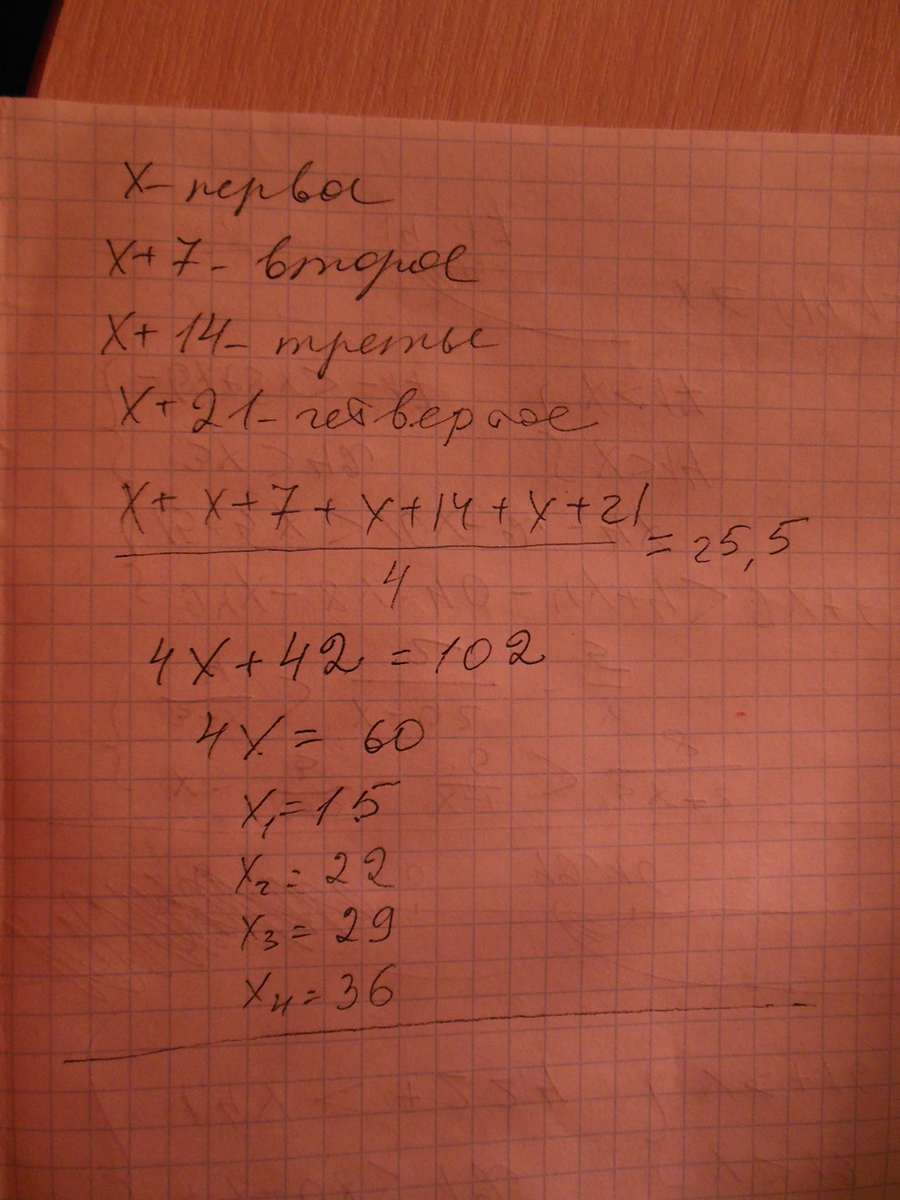 x - первое
x + 7 - второе
x + 14 - третье
x + 21 - четвертое
x + x + 7 + x + 14 + x + 21
4
= 25,5
4x + 42 = 102
4x = 60
x₁ = 15
x₂ = 22
x₃ = 29
x₄ = 36